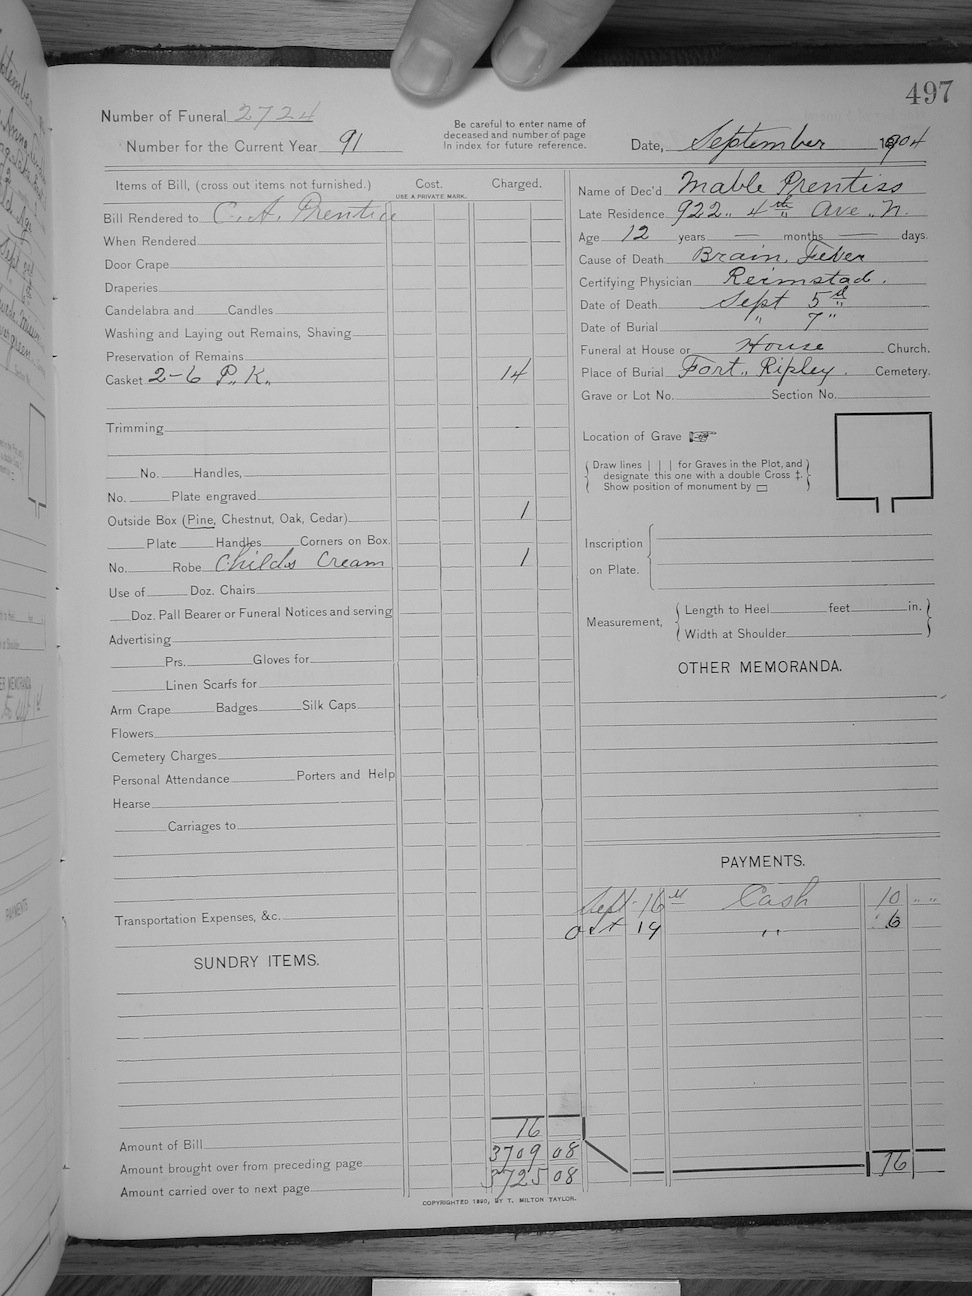 497
Number of Funeral 2724
Number for the Current Year 91
Be careful to enter name of
deceased and number of page
In index for future reference.
Date, September 1904
Items of Bill, (cross out items not furnished.)
Cost.
USE A PRIVATE MARK.
Charged.
Bill Rendered to C. A. Prentice
When Rendered
Door Crape
Draperies
Candelabra and Candles
Washing and Laying out Remains, Shaving
Preservation of Remains
Casket 2-6 P. K. 14
Trimming
No. Handles,
No. Plate engraved
Outside Box (Pine, Chestnut, Oak, Cedar) 1
Plate Handles Corners on Box.
No. Robe Childs Cream 1
Use of Doz. Chairs
Doz. Pall Bearer or Funeral Notices and serving
Advertising
Prs. Gloves for
Linen Scarfs for
Arm Crape Badges Silk Caps
Flowers
Cemetery Charges
Personal Attendance Porters and Help
Hearse
Carriages to
Transportation Expenses, &c.
SUNDRY ITEMS.
Amount of Bill 16
Amount brought over from preceding page 3709 08
Amount carried over to next page 3725 08
COPYRIGHTED 1890, BY T. MILTON TAYLOR.
Name of Dec'd Mable Prentiss
Late Residence 922 4th Ave. N.
Age 12 years — months — days.
Cause of Death Brain Fever
Certifying Physician Reimstad.
Date of Death Sept 5
Date of Burial " 7"
Funeral at House or House Church.
Place of Burial Fort Ripley. Cemetery.
Grave or Lot No. Section No.
Location of Grave
Draw lines | | | for Graves in the Plot, and
designate this one with a double Cross ‡.
Show position of monument by
Inscription
on Plate.
Measurement,
Length to Heel feet in.
Width at Shoulder
OTHER MEMORANDA.
PAYMENTS.
Sept 16 Cash 10 " "
Oct 19 " 6
16